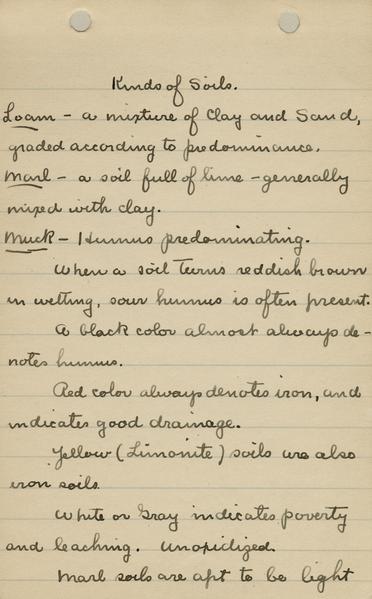 Kinds of Soils.
Loam - a mixture of Clay and Sand,
graded according to predominance.
Marl - a soil full of lime - generally
mixed with clay.
Muck - Humus predominating.
When a soil turns reddish brown
in wetting, sour humus is often present.
A black color almost always de-
notes humus.
Red color always denotes iron, and
indicates good drainage.
Yellow (Limonite) soils are also
iron soils
White or Gray indicates poverty
and leaching. Unoxidized.
Marl soils are apt to be light